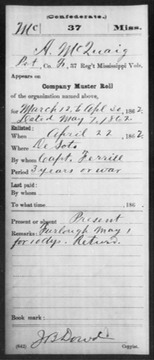 (Confederate.)
Mc 37 Miss.
A. McQuaig
Pvt, Co. F, 37 Reg't Mississippi Vols.
Appears on
Company Muster Roll
of the organization named above,
for March 12 to Apl 30, 1862.
Dated May 7, 1862
Enlisted:
When April 22, 1862.
Where De Soto
By whom Capt. Ferrill
Period 3 years or war
Last paid:
By whom
To what time , 186 .
Present or absent Present
Remarks: Furlough May 1
for 10 dys. Return.
Book mark:
J B Dowd
(642) Copyist.